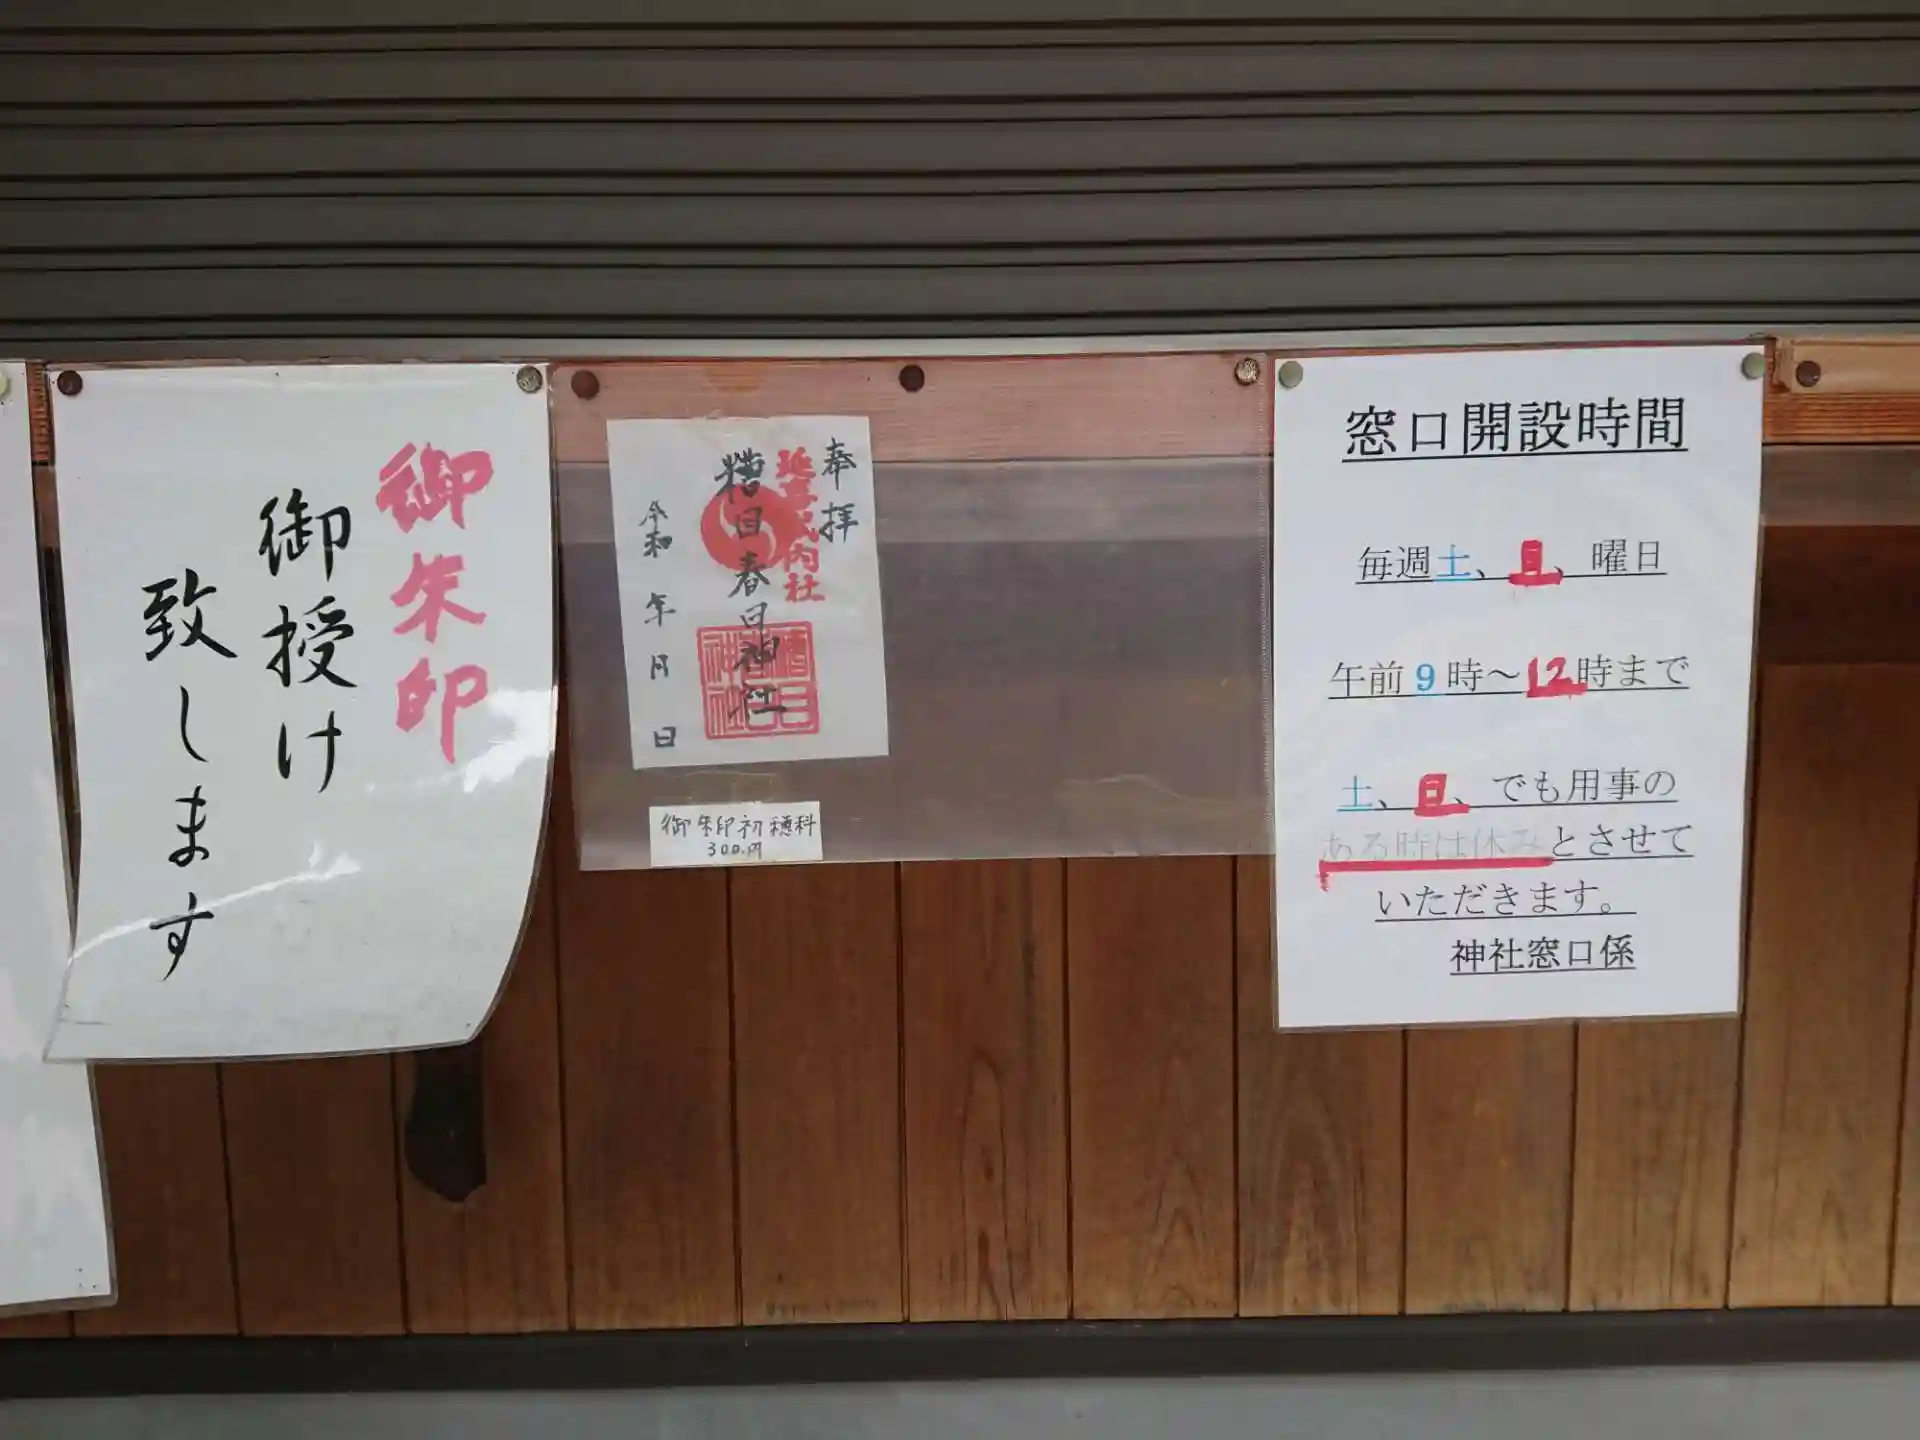 御朱印
御授け
致します
奉拝
延喜式内社
糟目春日神社
令和 年 月 日
御朱印初穂料
300.円
窓口開設時間
毎週土、日、曜日
午前9時～12時まで
土、日、でも用事の
ある時は休みとさせて
いただきます。
神社窓口係